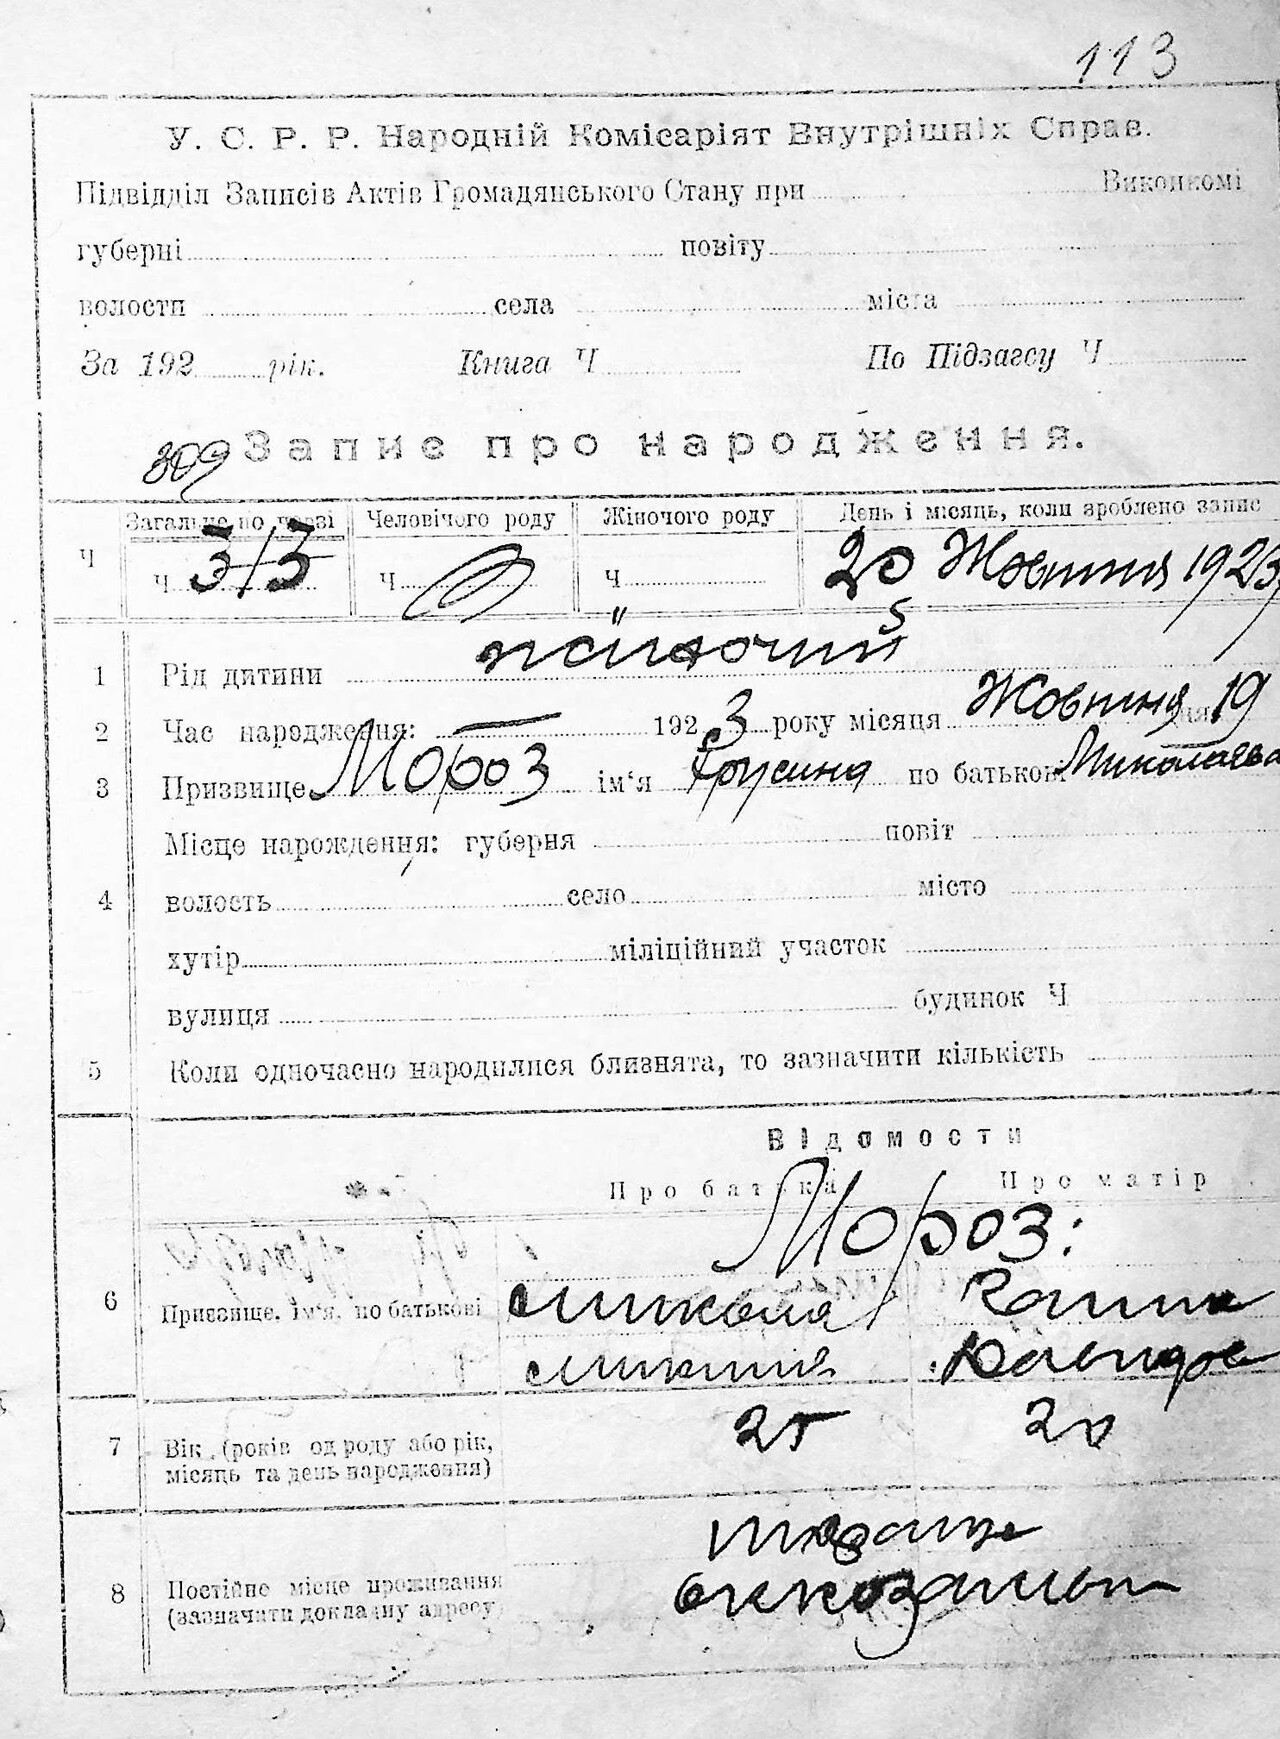 113
У. С. Р. Р. Народній Комісаріят Внутрішніх Справ.
Підвідділ Записів Актів Громадянського Стану при Виконкомі
губерні повіту
волости села міста
За 192 рік. Книга Ч По Підзагсу Ч
309 Запис про народження.
Загальне по черзі Человічого роду Жіночого роду День і місяць, коли зроблено запис
Ч Ч 313 Ч Ч 20 Жовтня 1923
1 Рід дитини жіночий
2 Час народження: — 1923 року місяця Жовтня дня 19
3 Призвище Мороз ім‘я по батькові Миколаєва
Місце народження: губерня повіт
4 волость село місто
хутір міліційний участок
вулиця будинок Ч
5 Коли одночасно народилися близнята, то зазначити кількість
Відомости
Про батька Про матір
Мороз:
6 Призвище, ім‘я, по батькові Микола
7 Вік (років од роду або рік, 25 20
місяць та день народження)
8 Постійне місце проживання
(зазначити докладну адресу)